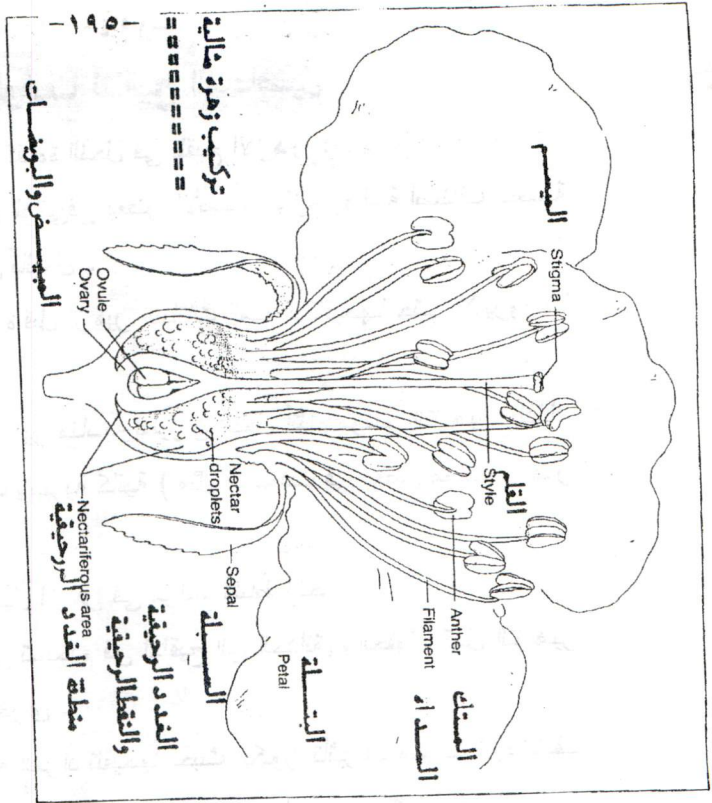 -١٩٥-
تركيب زهرة مثالية
الميسم
Stigma
القلم
Style
المتك
Anther
السداه
Filament
البتلة
Petal
السبلة
Sepal
الغدد الرحيقية
والنقط الرحيقية
Nectar
droplets
منطقة الغدد الرحيقية
Nectariferous area
Ovule
Ovary
المبيض والبويضات